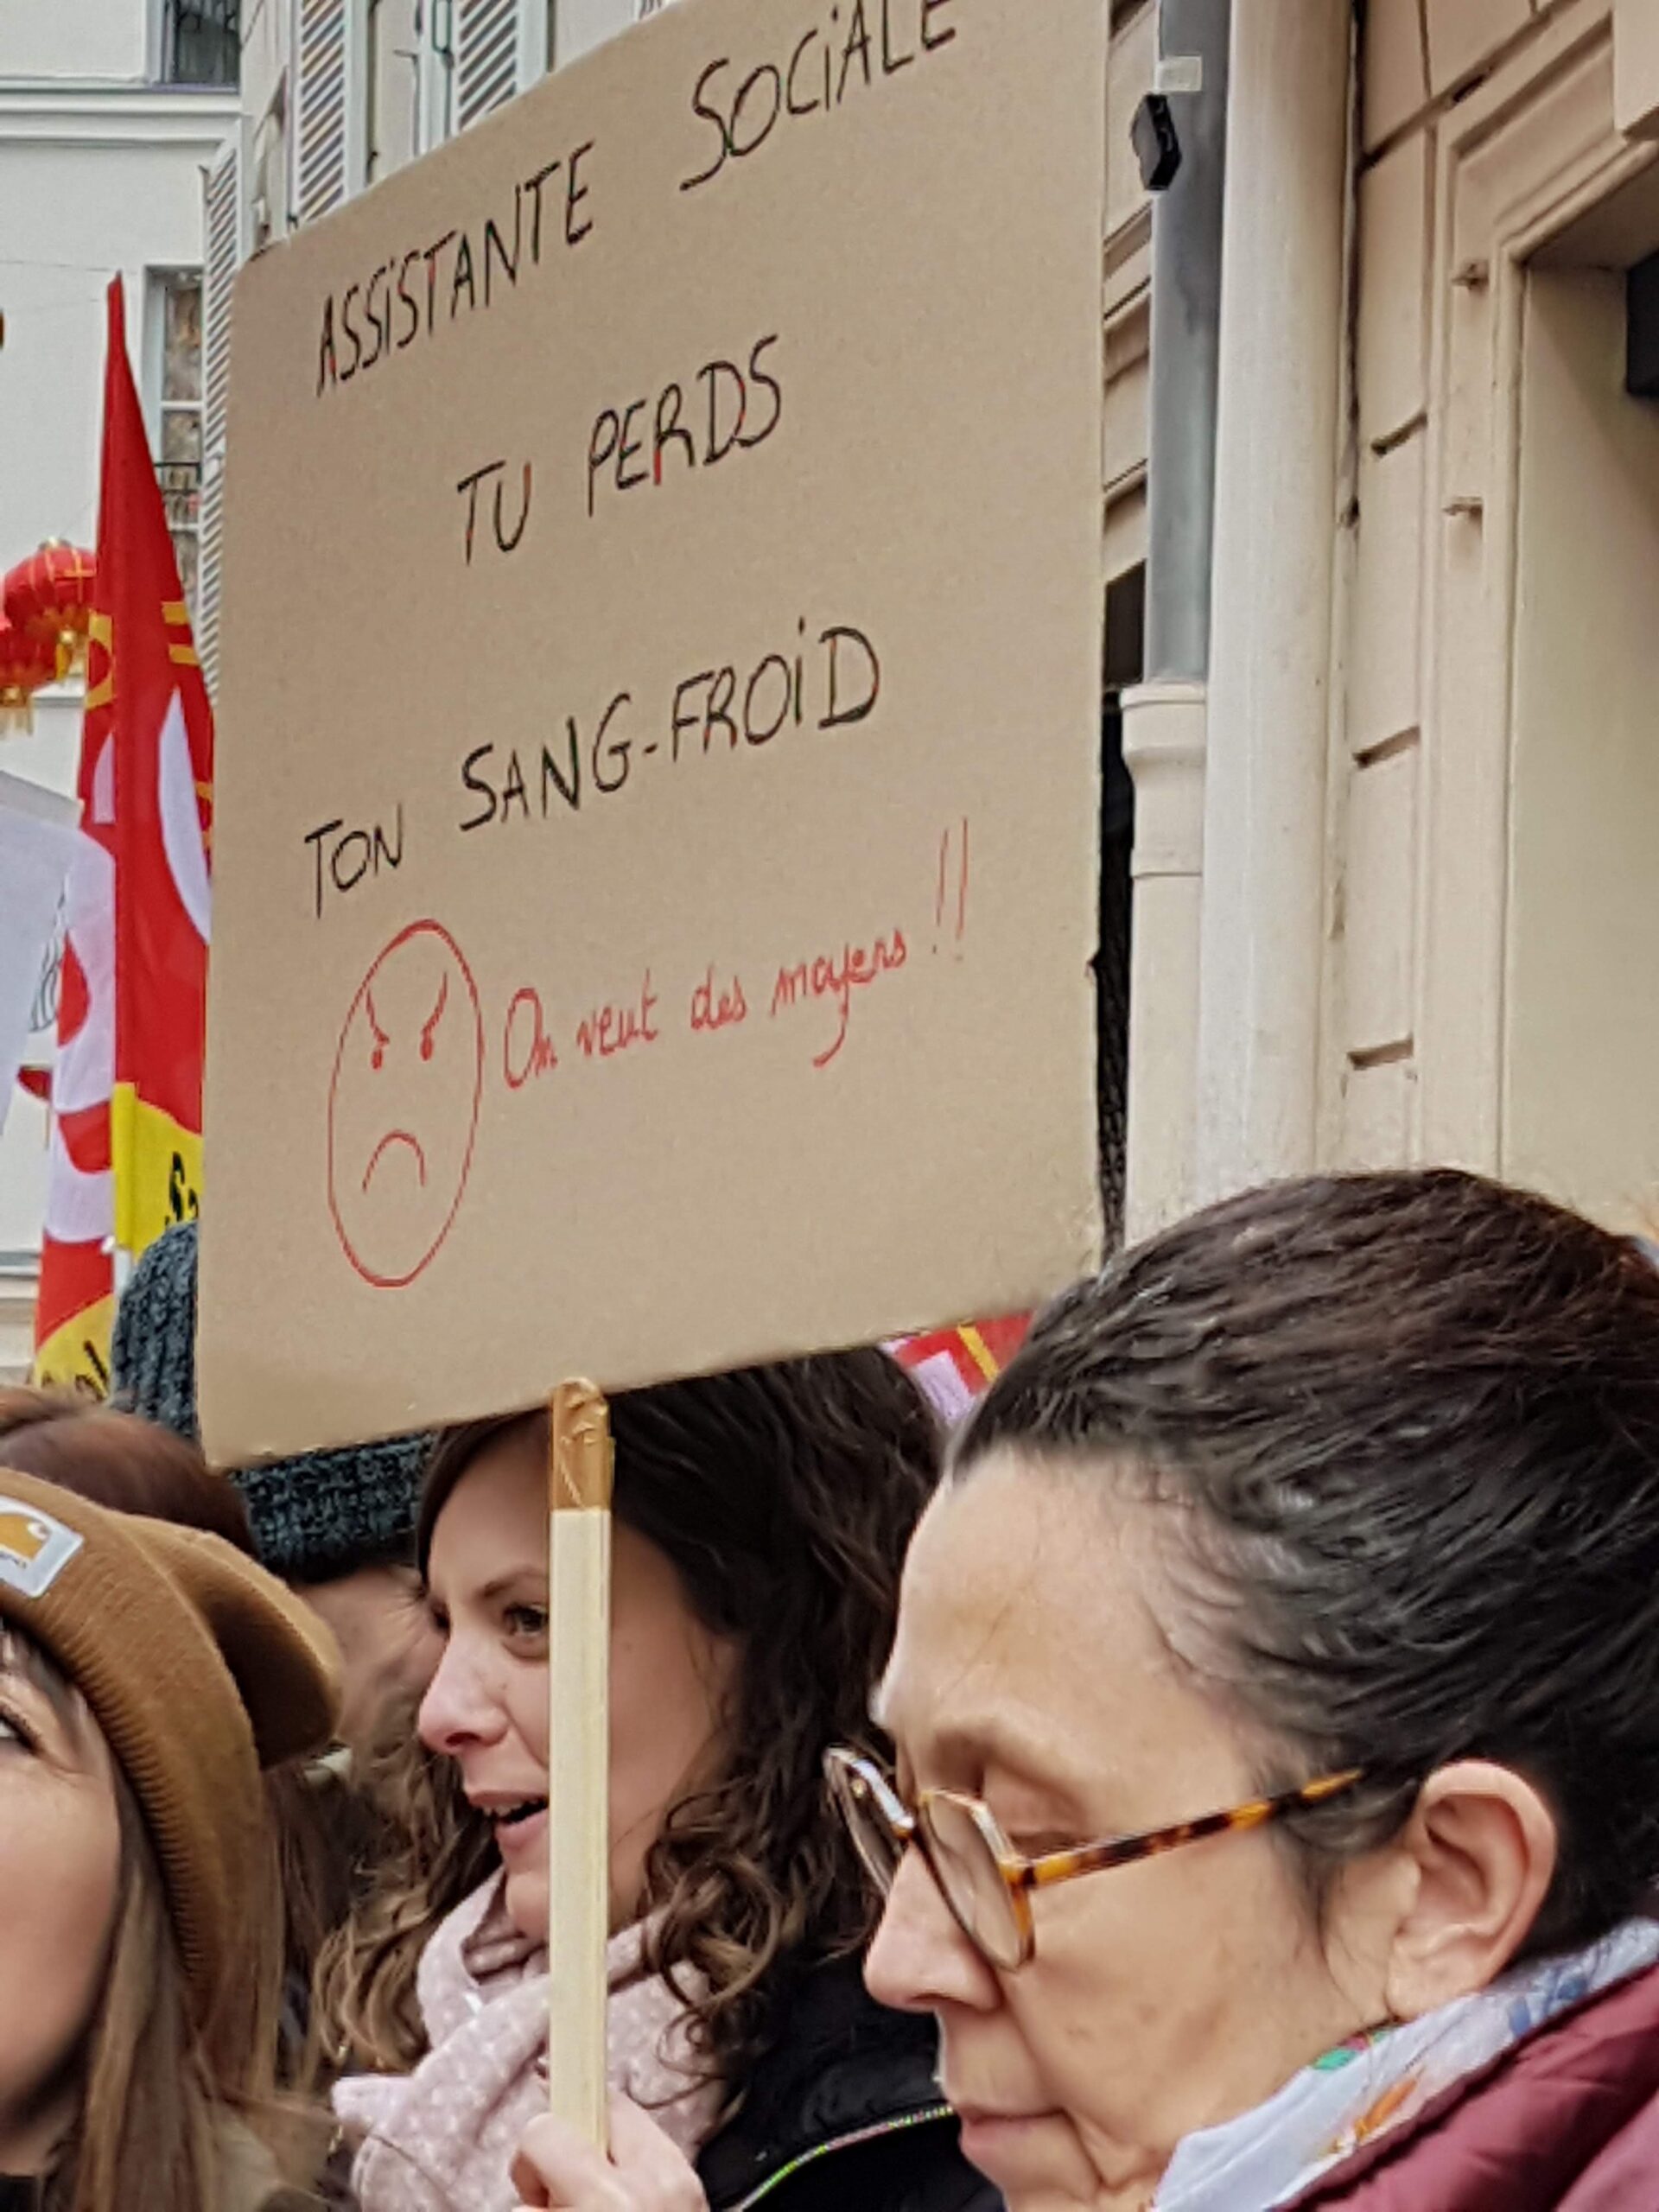 ASSiSTANTE SOCiALE
TU PERDS
TON SANG-FROiD
On veut des moyens !!